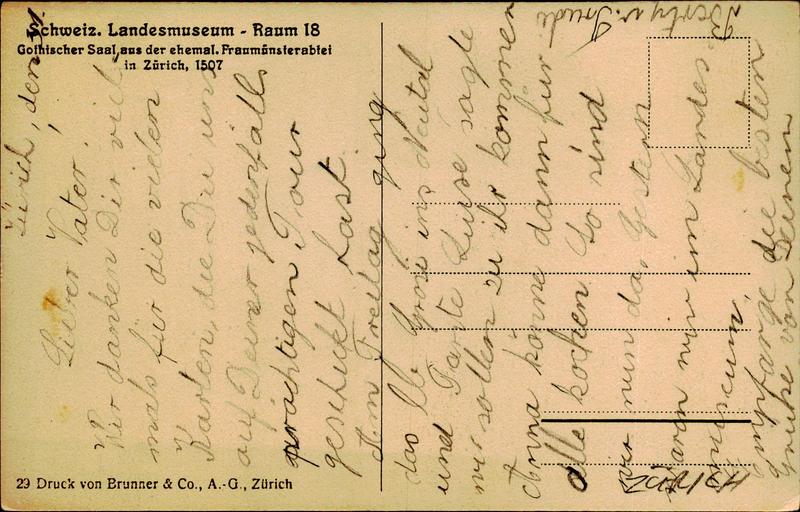 Schweiz. Landesmuseum - Raum 18
Gothischer Saal, aus der ehemal. Fraumünsterabtei
in Zürich, 1507
Zürich, den
Lieber Vater!
Wir danken Dir viel
mals für die vielen
Karten, die Du uns
auf Deiner jedenfalls
prächtigen Tour
geschickt hast.
Am Freitag ging
das lb. Grosi ins
und Tante Luise sagte
wir sollen zu ihr kommen
Anna könne dann für
alle kochen. So sind
wir nun da. Gestern
waren wir im Landes-
museum.
Empfange die besten
Grüsse von Deinem
Berty u. Trudi
29 Druck von Brunner & Co., A.-G., Zürich